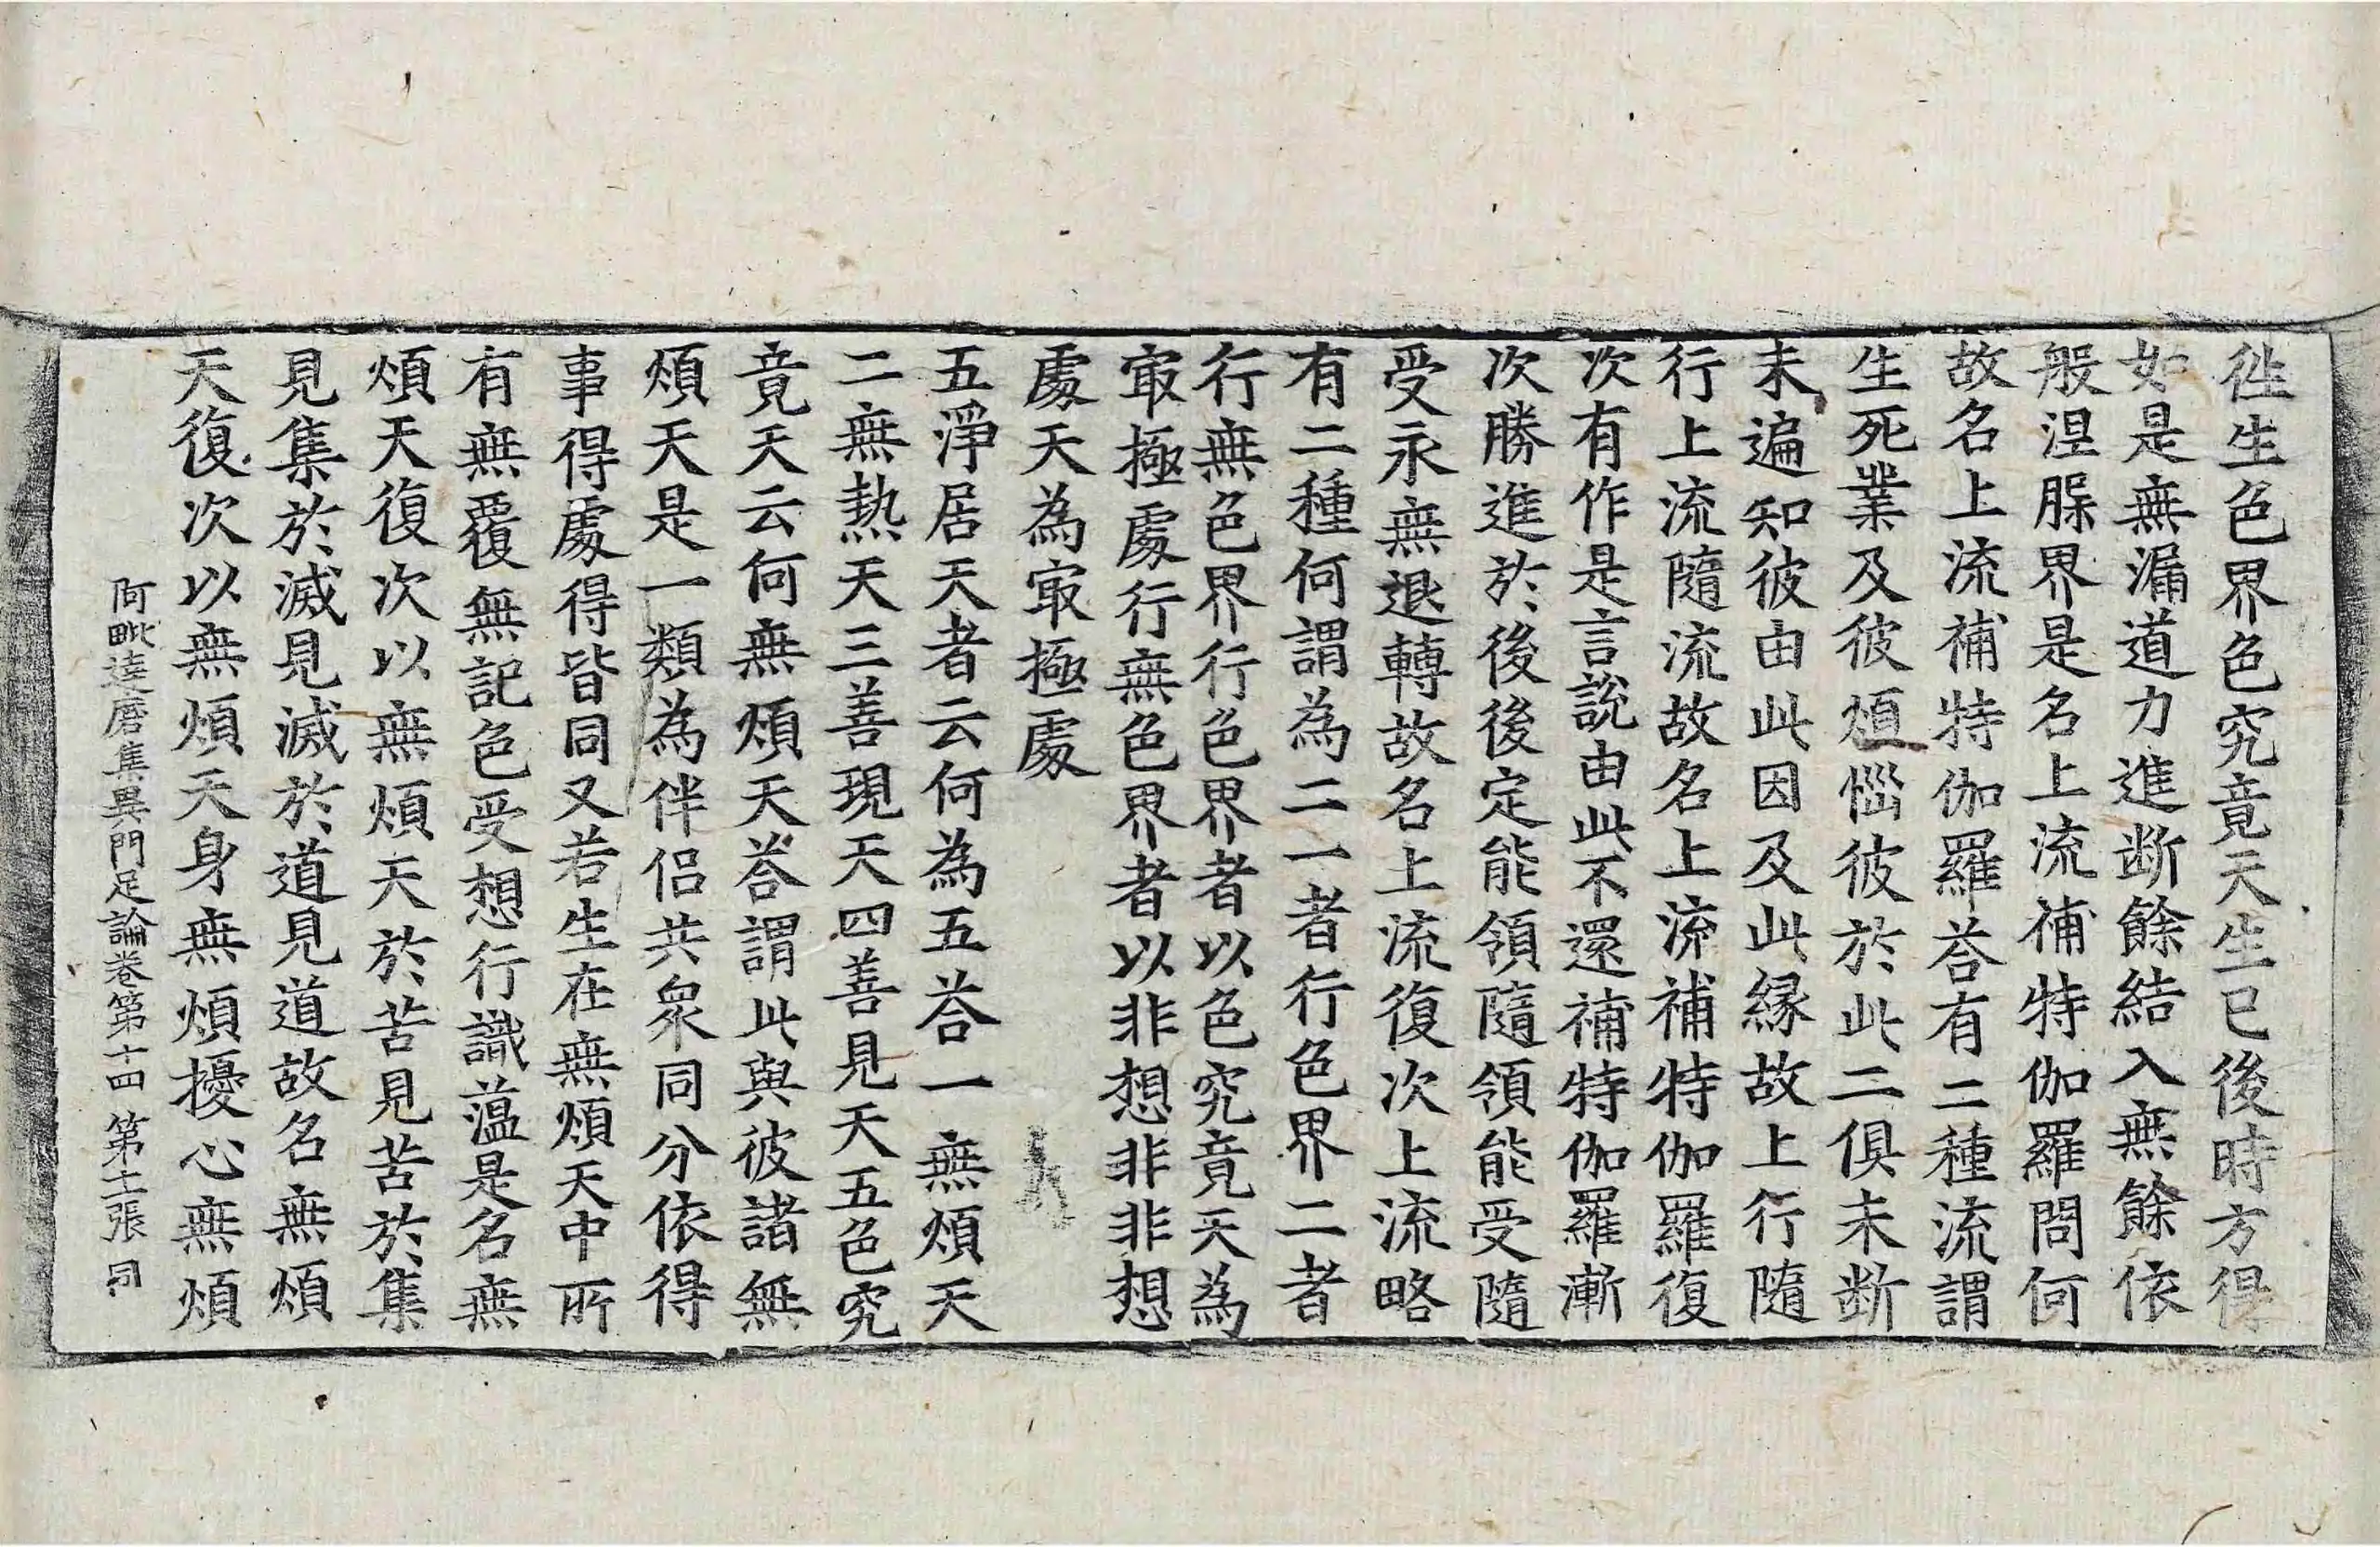 徃生色界色究竟天生已後時方得
如是無漏道力進断餘結入無餘依
般涅脲界是名上流補特伽羅問何
故名上流補特伽羅荅有二種流謂
生死業及彼煩惱彼於此二俱未断
未遍知彼由此因及此緣故上行隨
行上流隨流故名上流補特伽羅復
次有作是言說由此不還補特伽羅漸
次勝進於後後定能領隨領能受隨
受永無退轉故名上流復次上流略
有二種何謂為二一者行色界二者
行無色界行色界者以色究竟天為
㝡極處行無色界者以非想非非想
處天為㝡極處
五淨居天者云何為五荅一無煩天
二無熱天三善現天四善見天五色究
竟天云何無煩天荅謂此與彼諸無
煩天是一類為伴侶共衆同分依得
事得處得皆同又若生在無煩天中所
有無覆無記色受想行識蕰是名無
煩天復次以無煩天於苦見苦於集
見集於滅見滅於道見道故名無煩
天復次以無煩天身無煩擾心無煩
阿毗達磨集異門足論卷第十四 第十一張